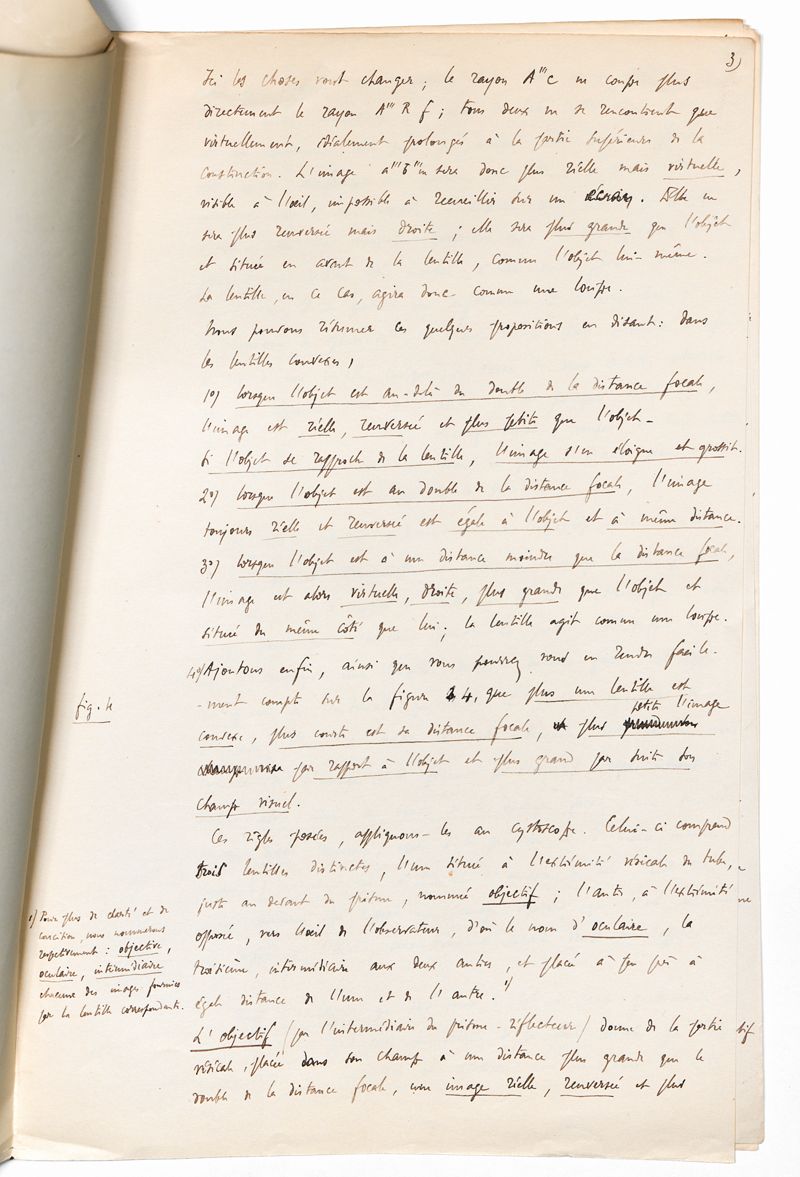 3)
Ici les choses vont changer ; le rayon A'''c ne coupe plus
directement le rayon A''' R f ; tous deux ne se rencontrent que
virtuellement, idéalement prolongés à la partie supérieure de la
construction. L'image a'''b''' ne sera donc plus réelle mais virtuelle,
visible à l'œil, impossible à recueillir sur un écran. Elle ne
sera plus renversée mais droite ; elle sera plus grande que l'objet
et située en avant de la lentille, comme l'objet lui-même.
La lentille, en ce cas, agira donc comme une loupe.
Nous pouvons résumer ces quelques propositions en disant : dans
les lentilles convexes,
1°) lorsque l'objet est au-delà du double de la distance focale,
l'image est réelle, renversée et plus petite que l'objet -
Si l'objet se rapproche de la lentille, l'image s'en éloigne et grossit.
2°) lorsque l'objet est au double de la distance focale, l'image
toujours réelle et renversée est égale à l'objet et à même distance.
3°) lorsque l'objet est à une distance moindre que la distance focale,
l'image est alors virtuelle, droite, plus grande que l'objet et
située du même côté que lui ; la lentille agit comme une loupe.
4°) Ajoutons enfin, ainsi que vous pourrez vous en rendre facile-
fig. 4
-ment compte sur la figure 4, que plus une lentille est
convexe, plus courte est sa distance focale, plus petite l'image
par rapport à l'objet et plus grand par suite son
champ visuel.
Ces règles posées, appliquons-les au cystoscope. Celui-ci comprend
trois lentilles distinctes, l'une située à l'extrémité vésicale du tube,
juste au devant du prisme, nommée objectif ; l'autre, à l'extrémité
opposée, vers l'œil de l'observateur, d'où le nom d'oculaire, la
troisième, intermédiaire aux deux autres, et placée à peu près à
égale distance de l'une et de l'autre. 1)
1) Pour plus de clarté et de
concision, nous nommerons
respectivement : objective,
oculaire, intermédiaire
chacune des images fournies
par la lentille correspondante.
L'objectif (par l'intermédiaire du prisme-réflecteur) donne de la partie
vésicale, placée dans son champ à une distance plus grande que le
double de la distance focale, une image réelle, renversée et plus